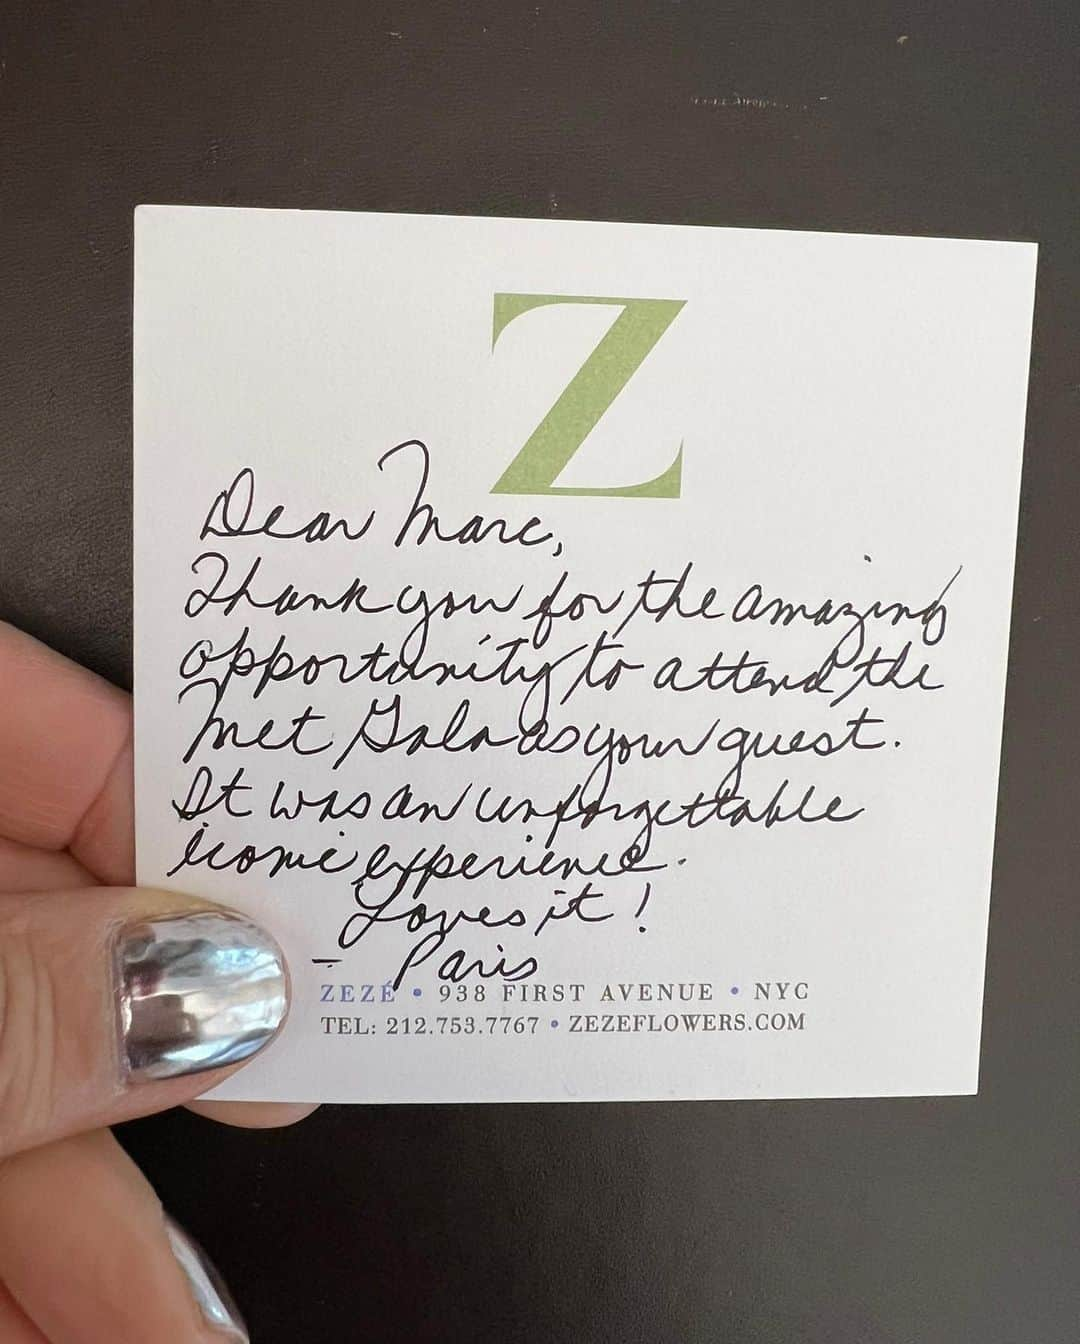 Z
Dear Marc,
Thank you for the amazing
opportunity to attend the
Met Gala as your guest.
It was an unforgettable
iconic experience.
Loves it!
- Paris
ZEZÉ • 938 FIRST AVENUE • NYC
TEL: 212.753.7767 • ZEZEFLOWERS.COM